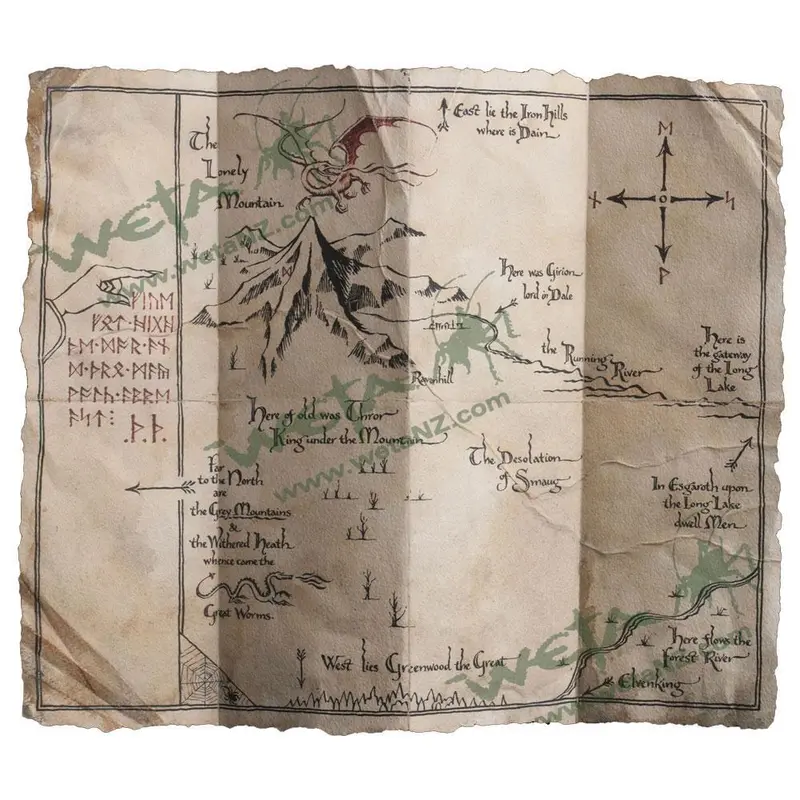 The
Lonely
Mountain
East lie the Iron Hills
where is Dain
Here was Girion
lord in Dale
the Running River
Here is
the gateway
of the Long
Lake
Ravenhill
Here of old was Thror
King under the Mountain
The Desolation
of Smaug
Far
to the North
are
the Grey Mountains
&
the Withered Heath
whence came the
Great Worms.
In Esgaroth upon
the Long Lake
dwell Men
West lies Greenwood the Great
Here flows the
Forest River
Elvenking
WETA
www.wetaNZ.com
WETA
www.wetaNZ.com
WETA